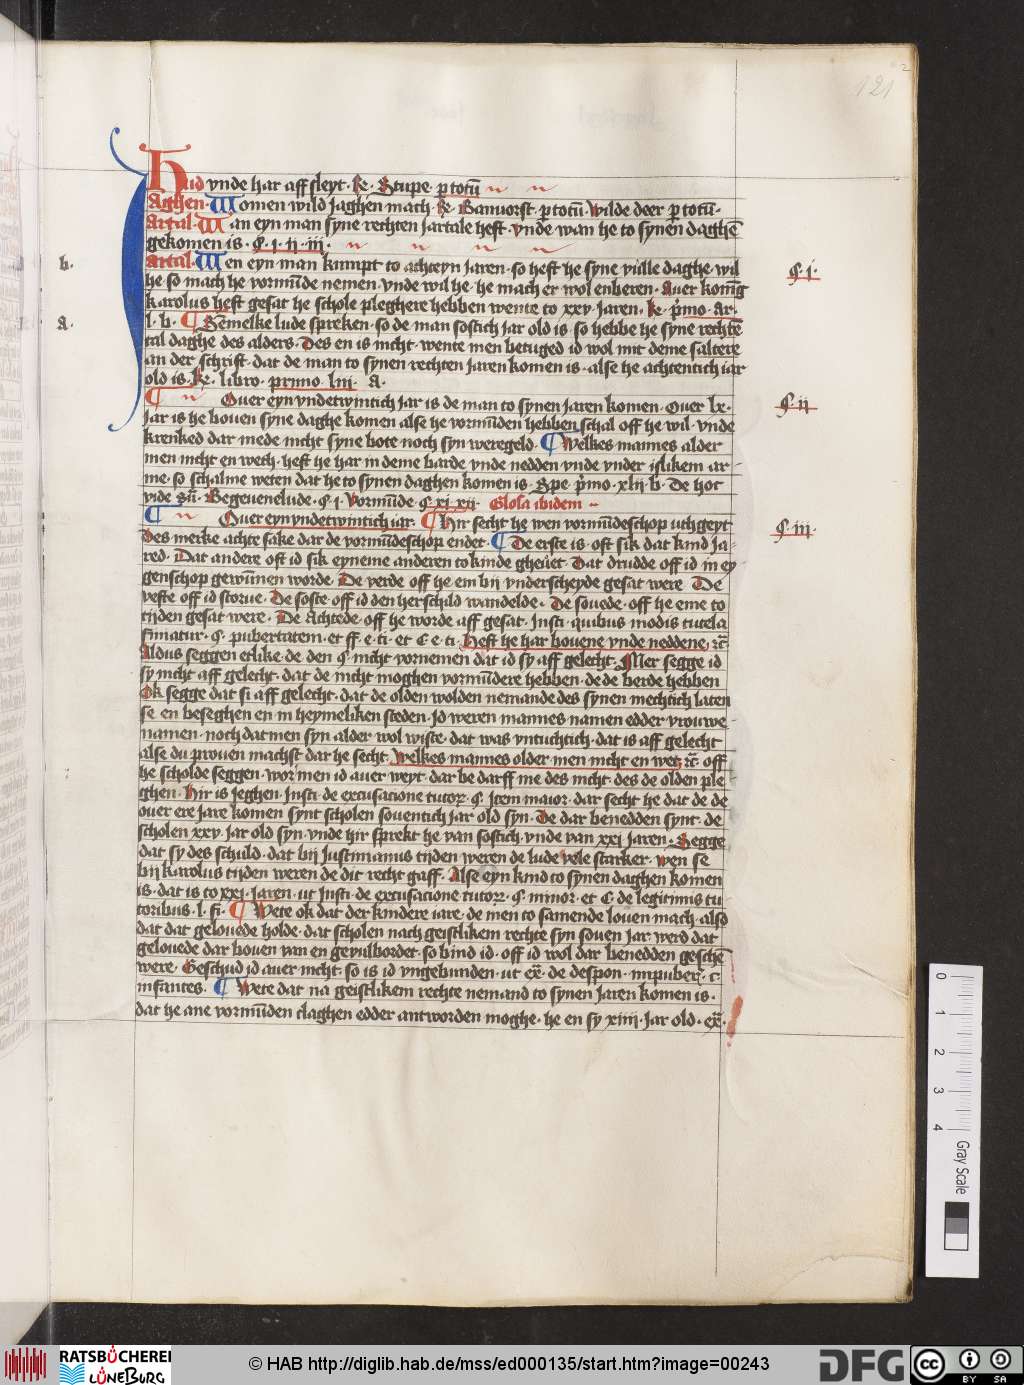 121
Hud vnde har aff sleyt · Re · Stupe p totū
Aghen · Women wild jaghen mach · Re · Banuorst p totū · wilde deer p totū ·
Artal · Wan eyn man syne rechten jartale heft · vnde wan he to synen daghē
gekomen is · ꝯ · i · ii · iii ·
b.
Artal · Wen eyn man kumpt to achteyn jaren · so heft he syne vulle daghe · wil
ꝯ · i ·
he so mach he vormūde nemen · vnde wil he · he mach er wol enberen · Auer konīg
karolus heft gesat he schole pleghere hebben wente to xxv jaren · Re · p̄mo · ar ·
a.
l · b · ¶ Semelke lude spreken · so de man sostich jar old is · so hebbe he syne rechtē
tal daghe des alders · Des en is nicht · wente men betuged id wol mit deme saltere
an der schrift · dat de man to synen rechten jaren komen is · alse he achtentich iar
old is · Re · libro · primo · liii · a ·
¶ Ouer eyn vndetwintich jar is de man to synen jaren komen · Ouer lx ·
ꝯ · ii
jar is he bouen syne daghe komen alse he vormūden hebben schal off he wil · vnde
krenked dar mede nicht syne bote noch syn weregeld · ¶ Welkes mannes alder
men nicht en wech · heft he har in deme barde vnde nedden vnde vnder islikem ar-
me · so schalme weten dat he to synen daghen komen is · Spe p̄mo · xlii · b · De hoc
vide Sū · Begeuenelude · ꝯ · i · Vormūde ꝯ · xi · xii · Glosa ibidem
¶ Ouer eyn vndetwintich iar · ¶ Hir secht he wen vormūdeschop uth geyt
ꝯ · iii ·
Des merke achte sake dar de vormūdeschop endet · ¶ De erste is · oft sik dat kind ja-
red · Dat andere oft id sik eyneme anderen to kinde gheuet · Dat drudde off id in ey
genschop gewūnen worde · De verde off he em bij vnderscheyde gesat were · De
vefte off id storue · De soste · off id den herschild wandelde · De souede · off he eme to
tijden gesat were · De Achtede off he worde aff gesat · Insti · quibus modis tutela
finiatur · ꝯ · pubertatem · et ff · e · ti · et C · e · ti · Heft he har bouene vnde neddene · rc̄
Aldus seggen etlike · de den ꝯ nicht vornemen dat id sy aff gelecht · Mer segge id
sy nicht aff gelecht · dat de nicht moghen vormūdere hebben · de de berde hebben
Ok segge dat si aff gelecht · dat de olden wolden nemande des synen mechtich laten
se en beseghen en in heymeliken steden · Id weren mannes namen edder vrouwe-
namen · noch dat men syn alder wol wiste · dat was vntuchtich · dat is aff gelecht
alse du prouen machst dar he secht · welkes mannes older men nicht en wet · rc̄ · off
he scholde seggen · wor men id auer weyt · dar bedarff me des nicht · des de olden ple
ghen · Hir is jeghen · Insti · de excusacione tutor · ꝯ · Item maior · dar secht he dat de de
ouer ere jare komen synt scholen souentich jar old syn · De dar benedden synt · de
scholen xxv · jar old syn · vnde hir sprekt he van sostich · vnde van xxi jaren · Segge
dat sy des schuld · dat bij Justinianus tijden weren de lude vele starker · wen se
bij karolus tijden weren de dit recht gaff · Alse eyn kind to synen daghen komen
is · dat is to xxi · jaren · ut Insti · de excusacione tutor · ꝯ · minor · et C · de legitimis tu
toribus · l · fi · ¶ Wete ok dat der kindere iare · de men to samende louen mach · also
dat dat gelouede holde · dat scholen nach geistlikem rechte syn souen jar werd dat
gelouede dar bouen van en geuulbordet · so bind id · off id wol dar benedden geschē
were · Geschud id auer nicht · so is id vngebunden · ut ex̄ · de despon · inpuber · c ·
infantes · ¶ Wete dat na geistlikem rechte nemand to synen jaren komen is ·
dat he ane vormūden claghen edder antworden moghe · he en sy xiiii · jar old · ex̄ ·
0 1 2 3 4
Gray Scale
RATSBÜCHEREI
LÜNEBURG
© HAB http://diglib.hab.de/mss/ed000135/start.htm?image=00243
DFG
cc BY SA